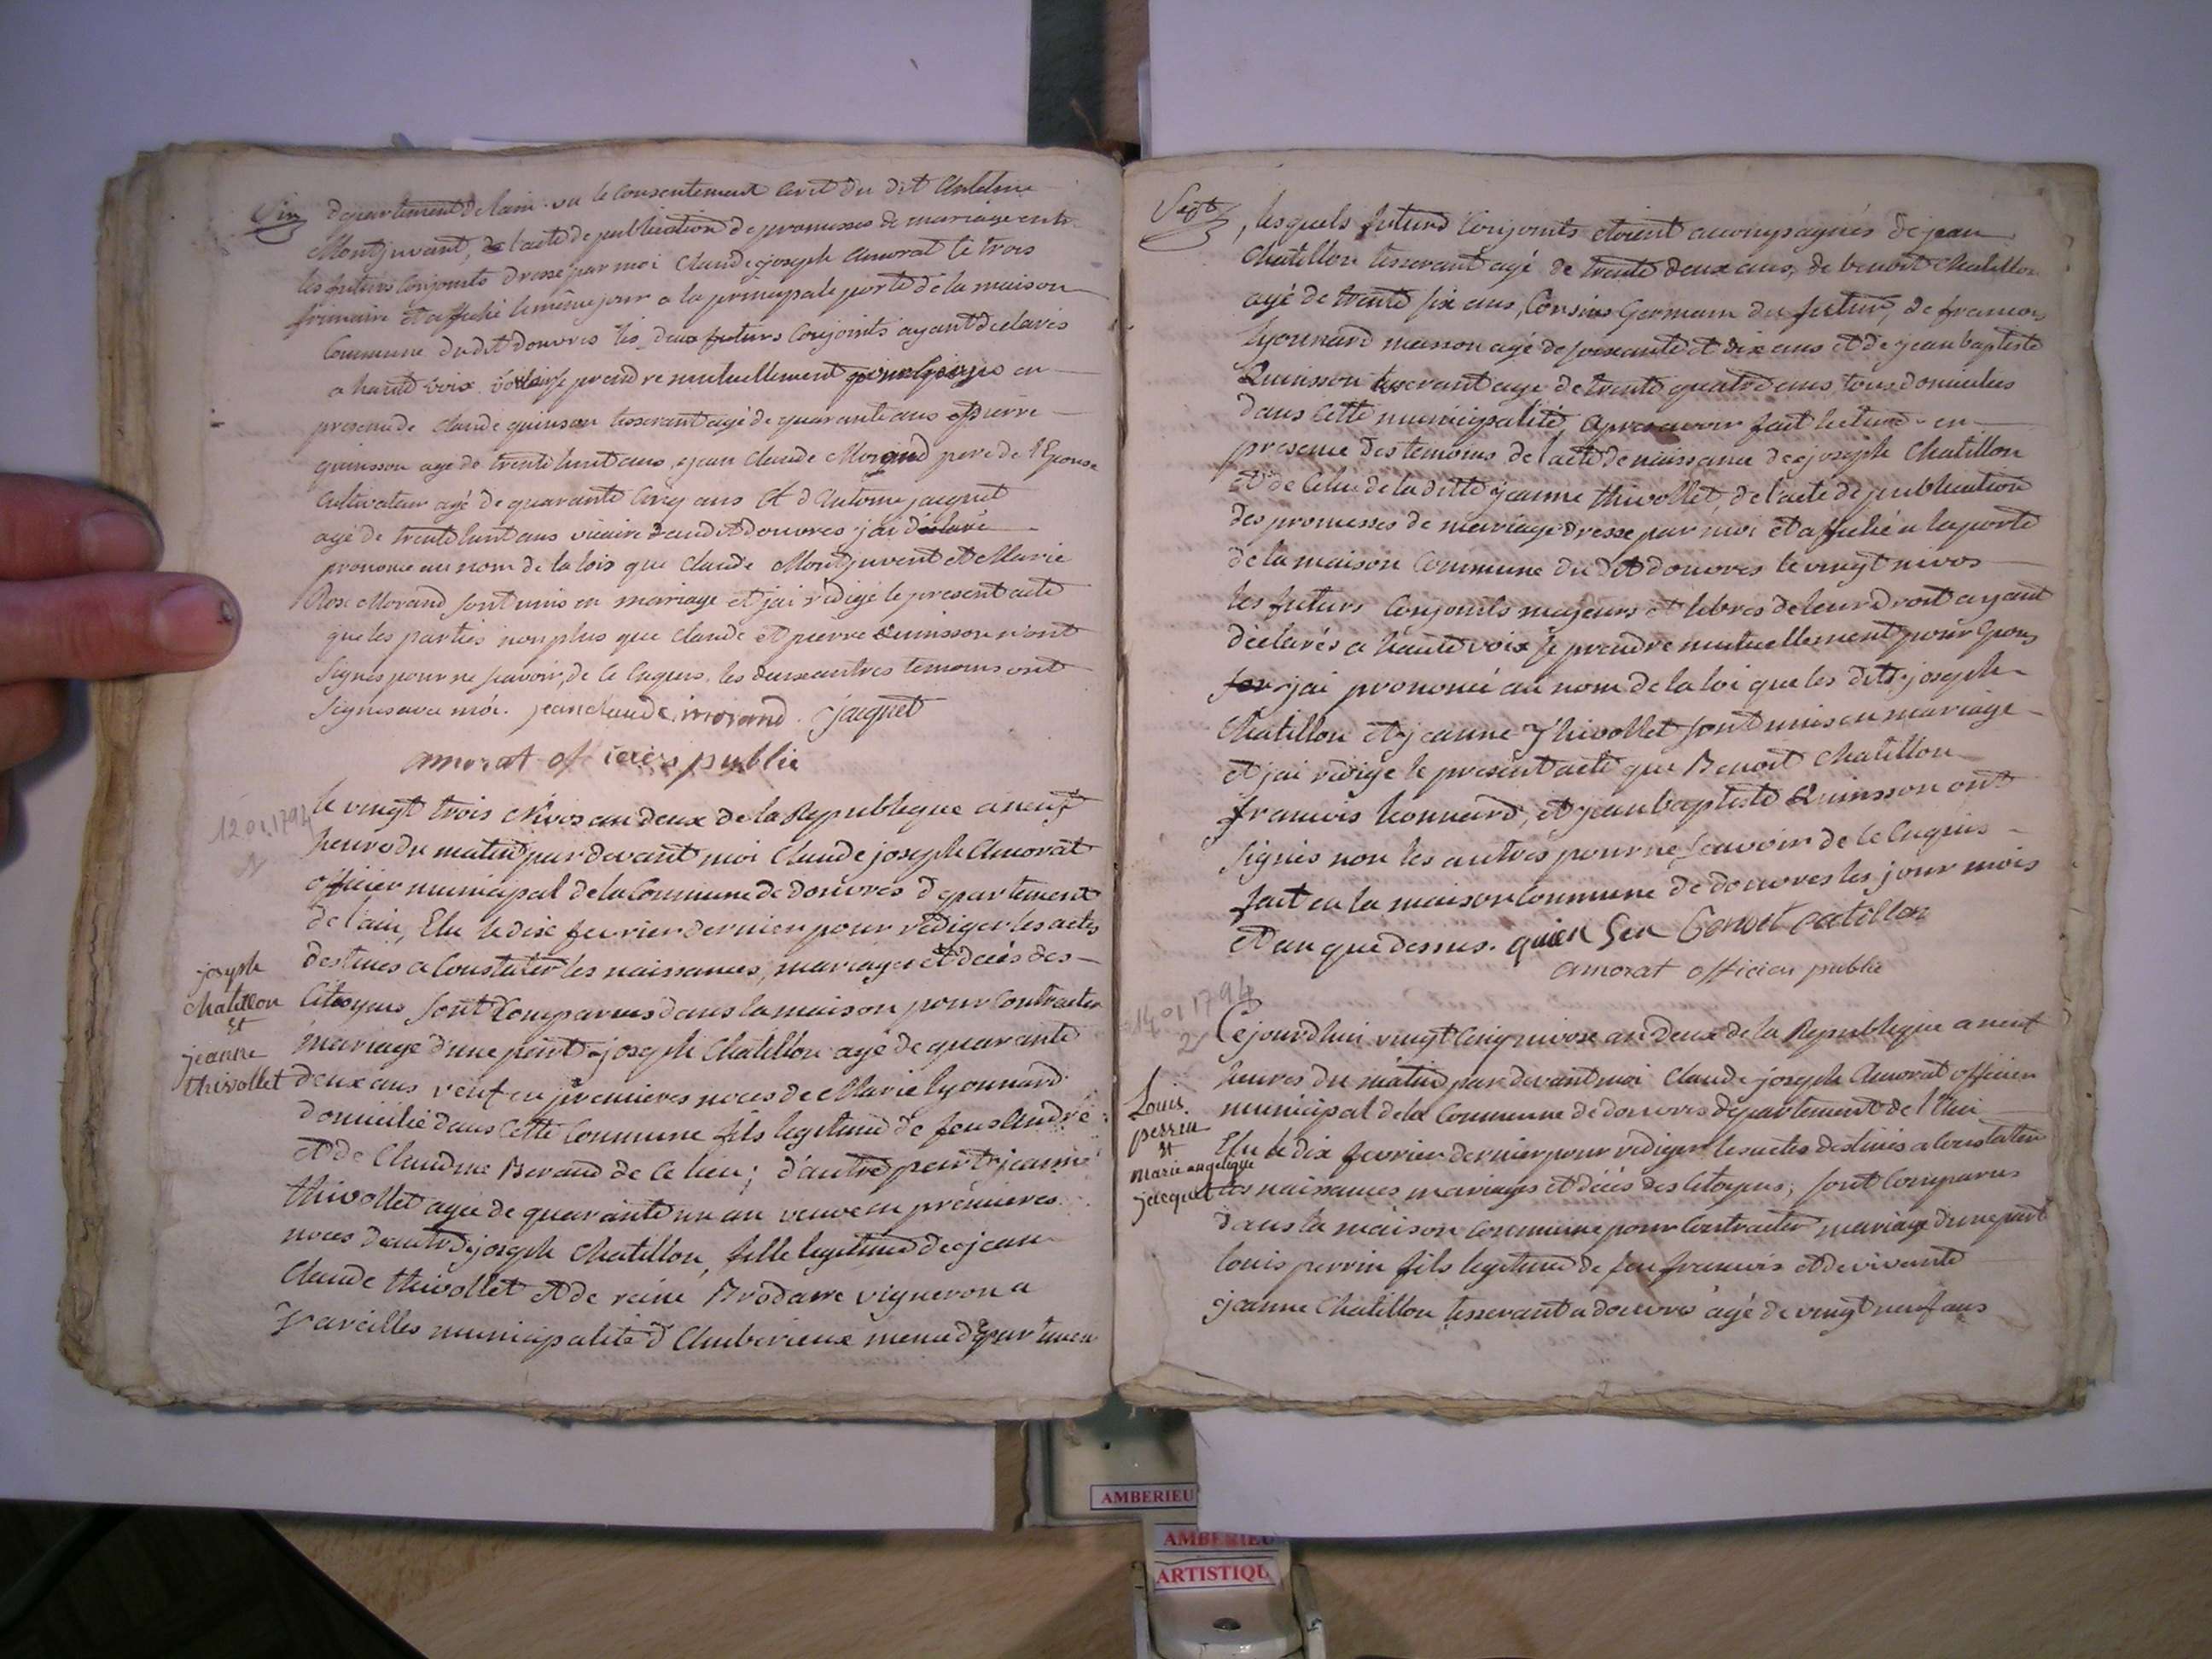 Six
departement de lain. vu le consentement ecrit du dit Antelme
Montjuvant, de l'acte de publication de promesses de mariage entre
les futurs conjoints dressé par moi Claude joseph Amorat le trois
frimaire et affiché le même jour a la principale porte de la maison
Commune du dit douvres les deux futurs Conjoints ayant declarés
a haute voix vouloir se prendre mutuellement pour Epoux en
presence de Claude quinson tesserant agé de quarante ans et pierre
quinsson agé de trente huit ans, jean Claude Morand pere de l'Epouse
Cultivateur agé de quarante Cinq ans et d'Antoine jacquet
agé de trente huit ans vicaire dudit douvres j'ai declaré
prononcé au nom de la lois que Claude Montjuvent et Marie
Rose Morand sont unis en mariage et j'ai redigé le present acte
que les parties non plus que Claude et pierre Quinsson n'ont
signés pour ne scavoir, de ce enquis, les deux autres temoins ont
signés avec moi. jean claude morand. jacquet
amorat officiers public
12.01.1794
le vingt trois Nivos an deux de la Republique a neuf
heures du matin par devant moi Claude joseph Amorat
officier municipal de la Commune de douvres departement
de l'ain, Elu le dix fevrier dernier pour rediger les actes
destines a Constater les naissances, mariages et décès des
Citoyens sont Comparus dans la maison pour Contracter
mariage d'une part joseph Chatillon agé de quarante
deux ans veuf en premieres noces de Marie Lyonnard
domicilié dans Cette Commune fils legitime de feus André
et de Claudine Beraud de Ce lieu; d'autre part jeanne
thivollet agée de quarante un an veuve en premieres
noces d'autre joseph Chatillon, fille legitime de jean
Claude thivollet et de reine Brodarre vigneron a
Vareilles municipalité d'Amberieux meme departement
joseph
chatillon
et
jeanne
thivollet
Sept
, lesquels futurs Conjoints etoient accompagnés de jean
Chatillon tesserant agé de trente deux ans, de benoit Chatillon
agé de trente six ans, Cousins Germain du futur, de francois
Lyonnard masson agé de soixante et dix ans et de jean baptiste
Quinsson tesserant agé de trente quatre ans tous domiciliés
dans Cette municipalité, apres avoir fait lecture en
presence des temoins de l'acte de naissance de joseph Chatillon
et de Celui de la ditte jeanne thivollet, de l'acte de publication
des promesses de mariage dressé par moi et affiché a la porte
de la maison Commune du dit douvres le vingt nivos
les futurs Conjoints majeurs et libres de leur droit ayant
déclarés a haute voix se prendre mutuellement pour Epoux
j'ai prononcé au nom de la loi que les dits joseph
Chatillon et jeanne Thivollet sont unis en mariage
et j'ai redigé le present acte que Benoit Chatillon
francois lionnard, et jean baptiste Quinsson ont
signés non les autres pour ne scavoir de ce enquis
fait en la maison Commune de douvres les jour mois
et an que dessus. quien Son Benoit catillon
amorat officier public
14.01.1794
2
Cejourdhui vingt Cinq nivose an deux de la Republique a neuf
heures du matin par devant moi Claude joseph Amorat officier
municipal de la Commune de douvres departement de l'Ain
Elu le dix fevrier dernier pour rediger les actes destinés a Constater
les naissances mariages et décès des Citoyens; sont Comparus
dans la maison Commune pour Contracter mariage d'une part
louis perrin fils legitime de feu francois et de vivante
jeanne Chatillon tesserant a douvres agé de vingt neuf ans
Louis
perrin
et
marie angelique
jacquet
AMBERIEU
AMBERIEU
ARTISTIQU